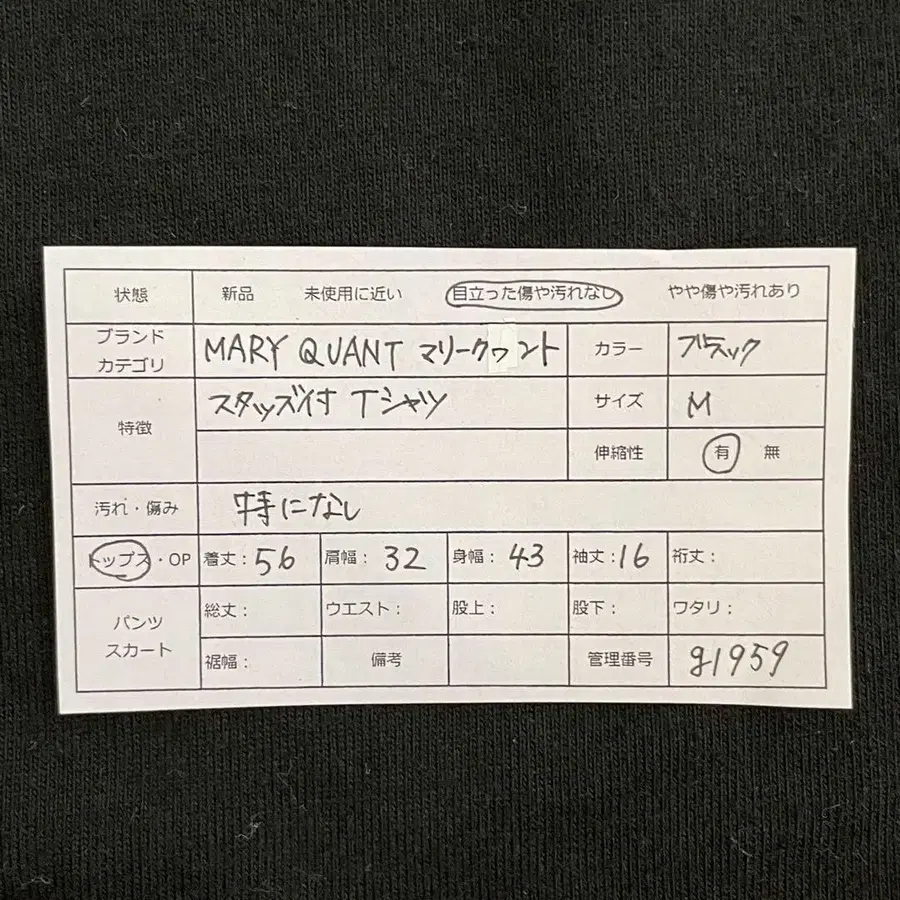 状態 新品 未使用に近い 目立った傷や汚れなし やや傷や汚れあり
ブランド カテゴリ MARY QUANT マリークヮント カラー ブラック
特徴 スタッズ付 Tシャツ サイズ M
伸縮性 有 無
汚れ・傷み 特になし
トップス・OP 着丈:56 肩幅:32 身幅:43 袖丈:16 裄丈:
パンツ スカート 総丈: ウエスト: 股上: 股下: ワタリ:
裾幅: 備考 管理番号 g1959